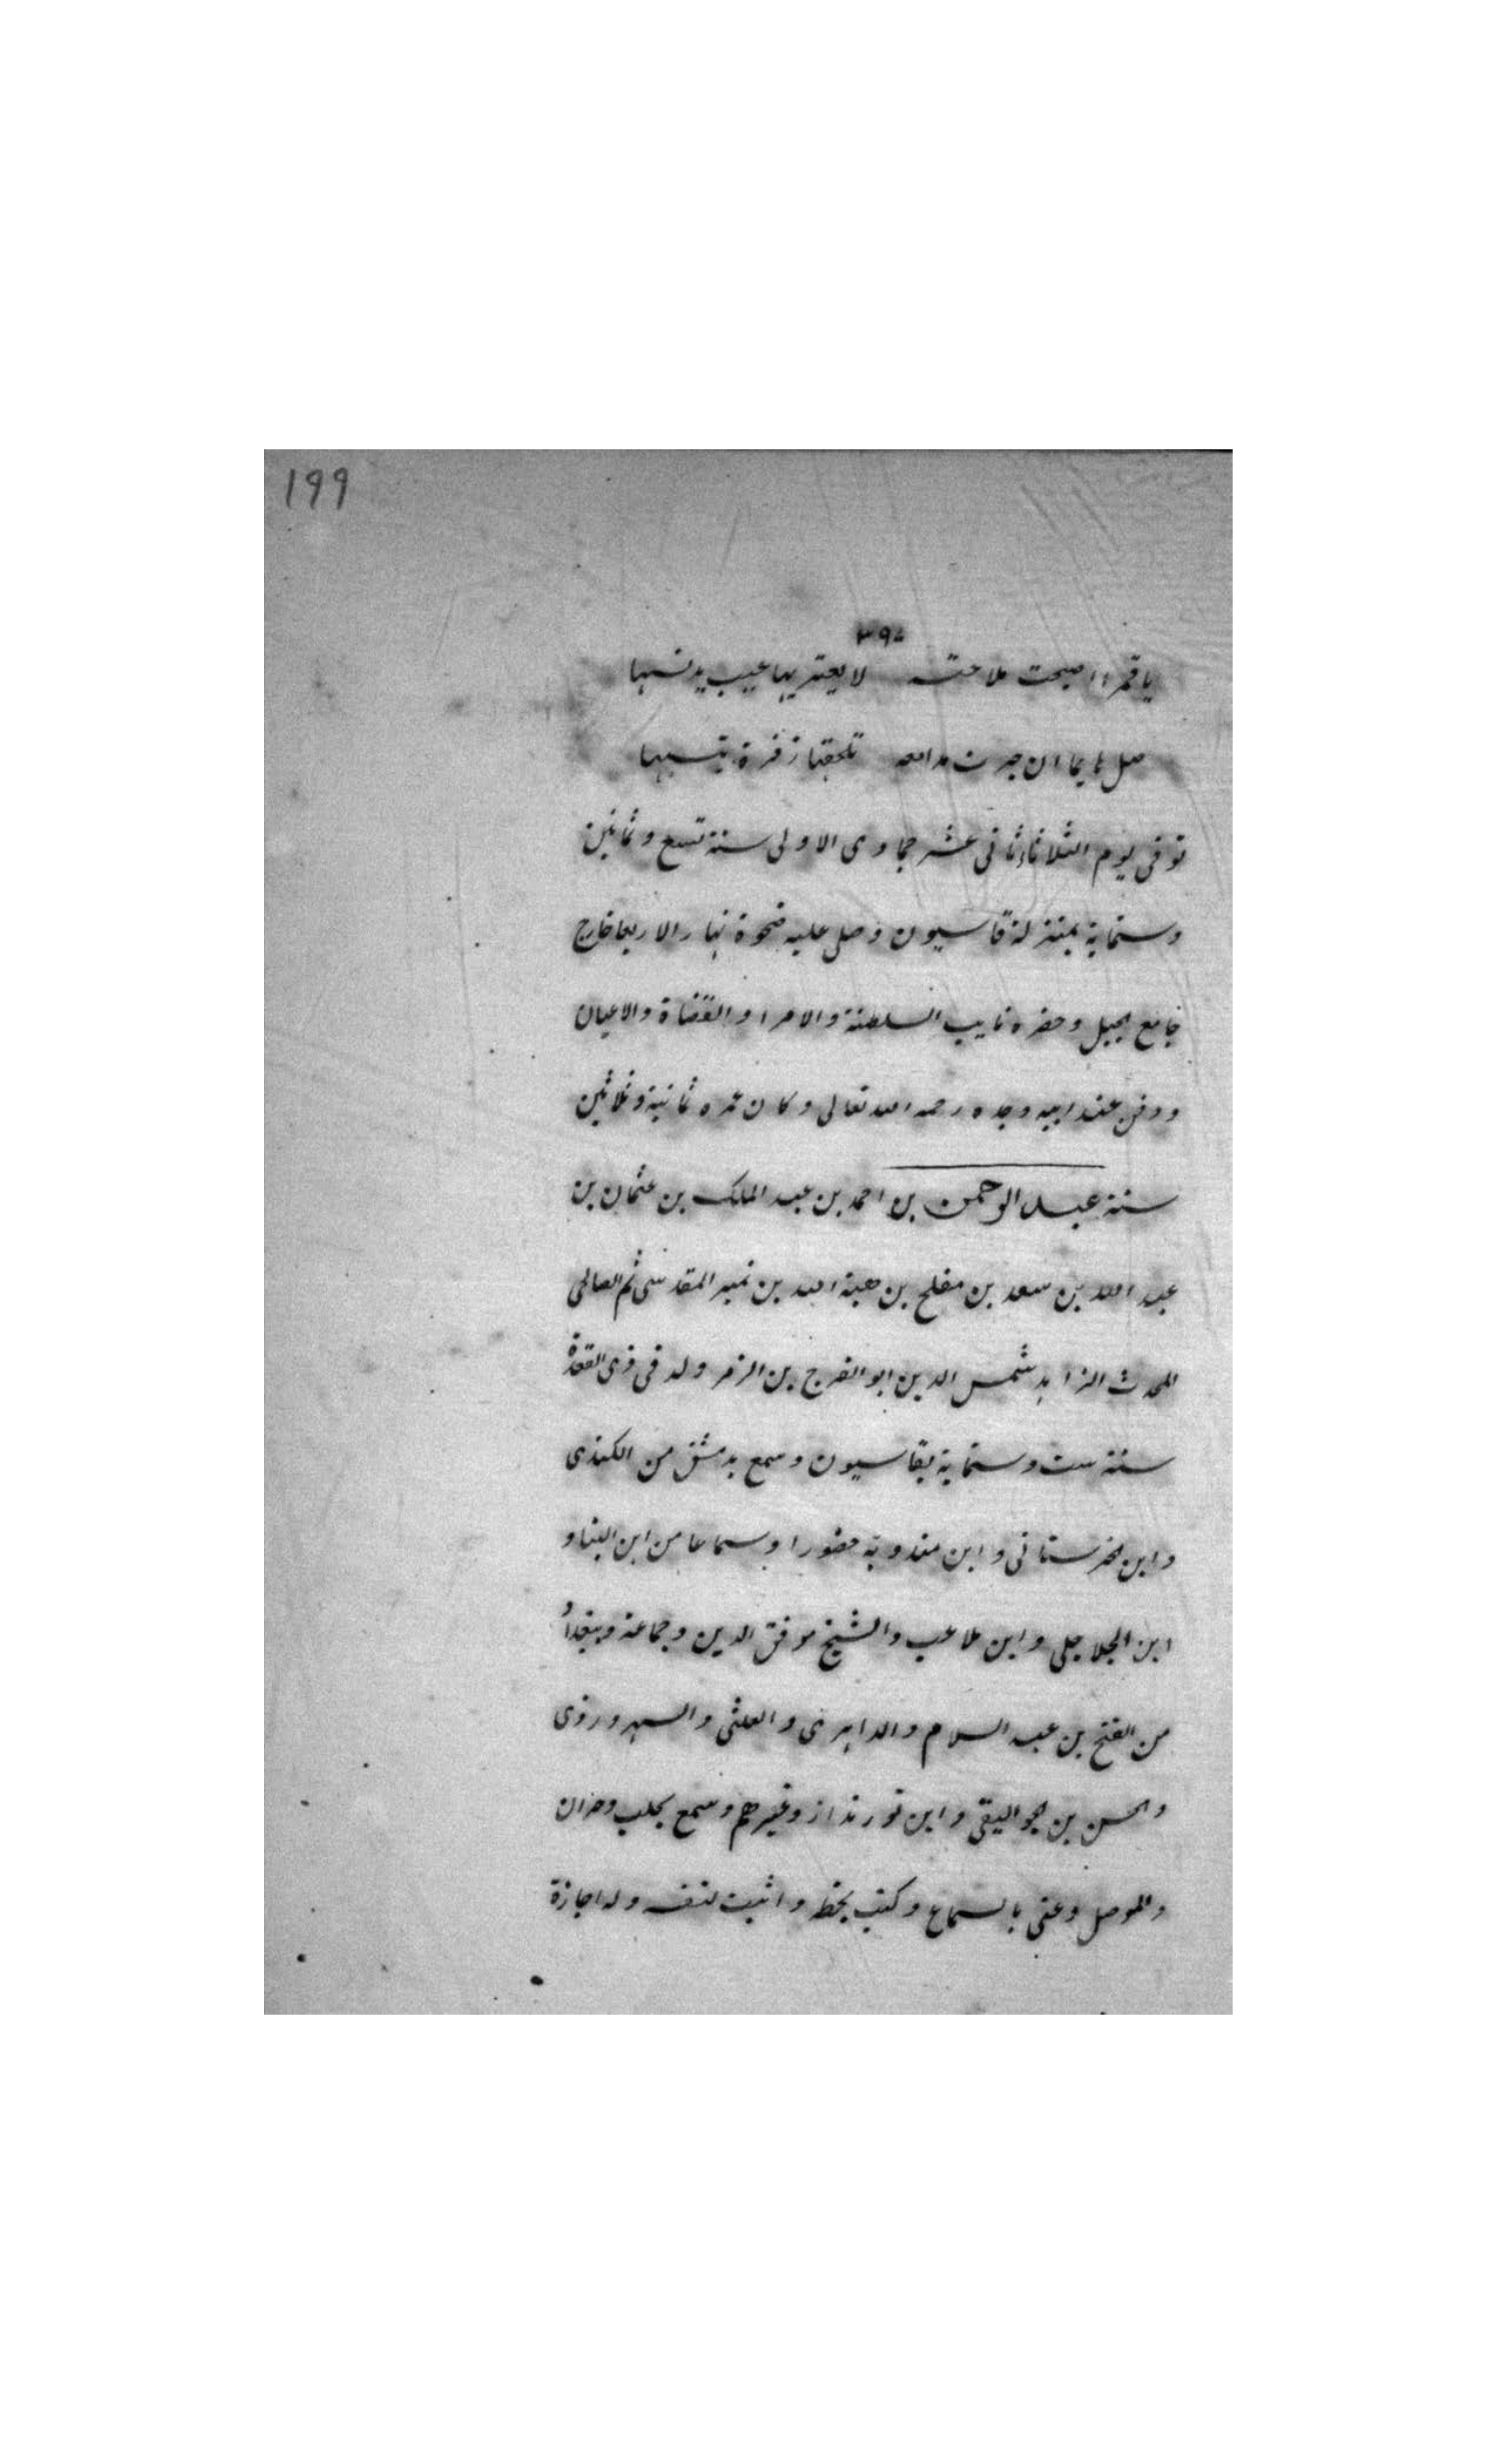 199
٣٩٥
ياقمرا اصبحت ملاحته لا يعتريها عيب يدنسها
صل هايما ان جرت مدامعه تلحقها زفرة تيبسها
توفى يوم الثلاثاء ثانى عشر جماوى الاولى سنة تسع وثمانين
وستماية بمنزله قاسيون وصلى عليه ضحوة نهار الاربعا خارج
جامع الجبل وحضره نايب السلطنة والامرا والقضاة والاعيان
ودفن عند ابيه وجده رحمه الله تعالى وكان عمره ثمانية وثلاثين
سنة عبد الرحمن بن احمد بن عبد الملك بن عثمان بن
عبد الله بن سعد بن مفلح بن هبة الله بن نمير المقدسى ثم الصالحى
المحدث الزاهد شمس الدين ابو الفرج بن الزمر ولد فى ذى القعدة
سنة ست وستماية بقاسيون وسمع بدمشق من الكندى
وابن الخرستانى وابن مندوية حضورا وسماعا من ابن البنا و
ابن الجلاجلى وابن ملاعب والشيخ موفق الدين وجماعة وببغداد
من الفتح بن عبد السلام والداهرى والعلثى والسهروردى
والحسن بن الجواليقى وابن نورنداز وغيرهم وسمع بحلب وحران
والموصل وعنى بالسماع وكتب بخطه واثبت لنفسه وله اجازة